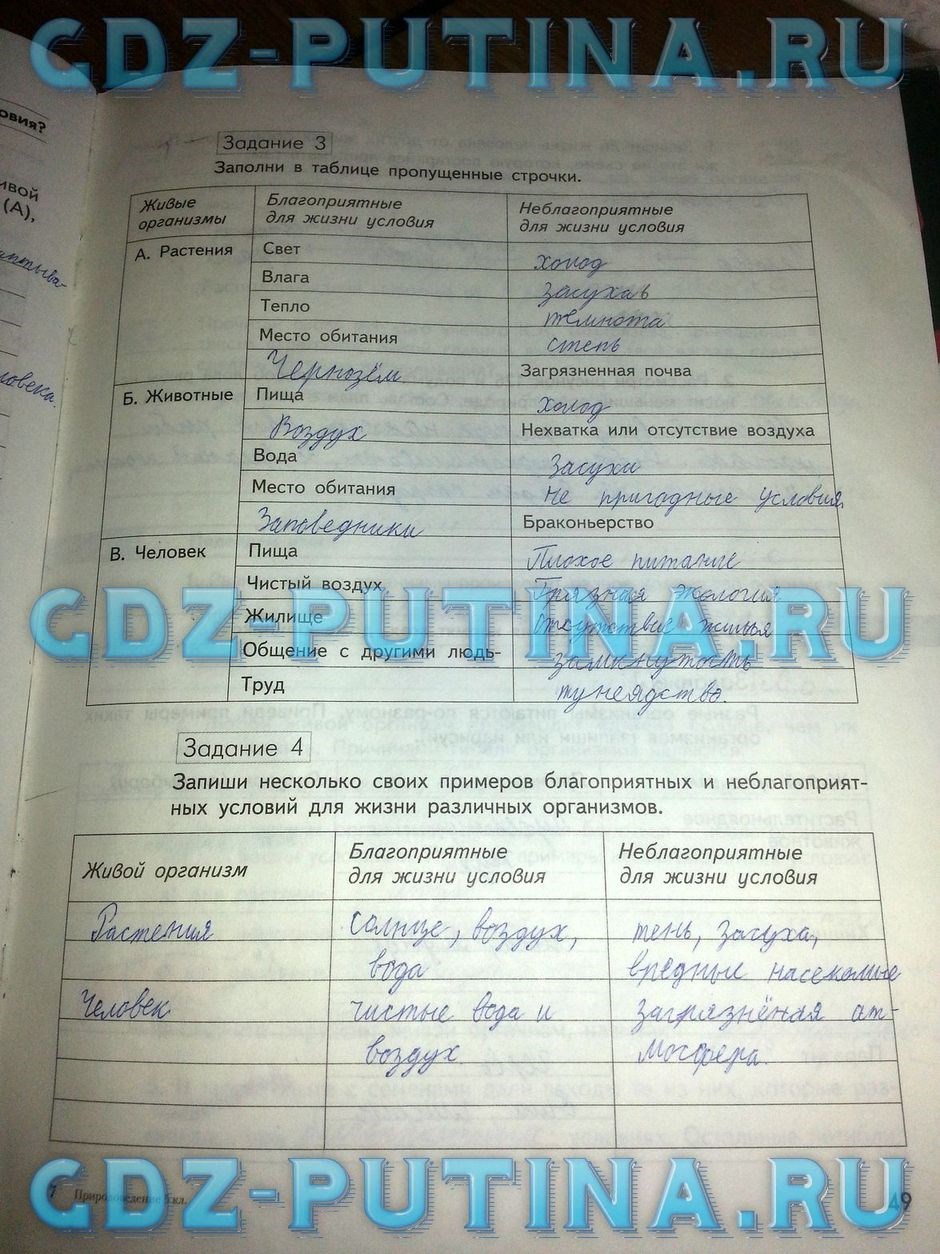 GDZ-PUTINA.RU
овия?
ивой
(А),
Задание 3
Заполни в таблице пропущенные строчки.
Живые организмы
Благоприятные для жизни условия
Неблагоприятные для жизни условия
А. Растения
Свет
холод
Влага
засуха
Тепло
темнота
Место обитания
степь
Чернозём
Загрязненная почва
Б. Животные
Пища
холод
Воздух
Нехватка или отсутствие воздуха
Вода
Засухи
Место обитания
не пригодные условия
Заповедники
Браконьерство
В. Человек
Пища
Плохое питание
Чистый воздух
Грязная экология
GDZ-PUTINA.RU
Жилище
Отсутствие жилья
Общение с другими людь-
замкнутость
Труд
тунеядство.
Задание 4
Запиши несколько своих примеров благоприятных и неблагоприят-
ных условий для жизни различных организмов.
Живой организм
Благоприятные для жизни условия
Неблагоприятные для жизни условия
Растения
солнце, воздух,
вода
тень, засуха,
вредные насекомые
Человек
чистые вода и
воздух
загрязнёная ат-
мосфера.
GDZ-PUTINA.RU
7 Природоведение 5 кл.
49